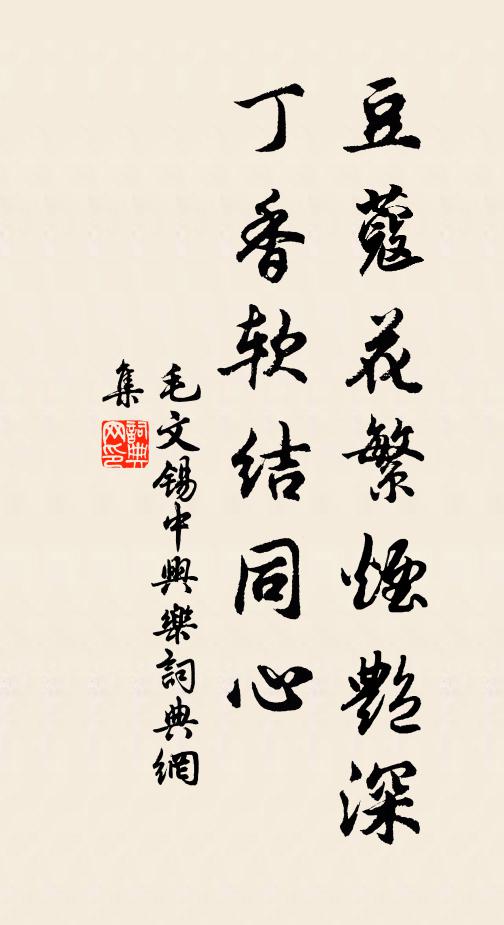 豆蔻花繁煙艷深
丁香软结同心
毛文锡中興樂詞典網
集
詞典网印